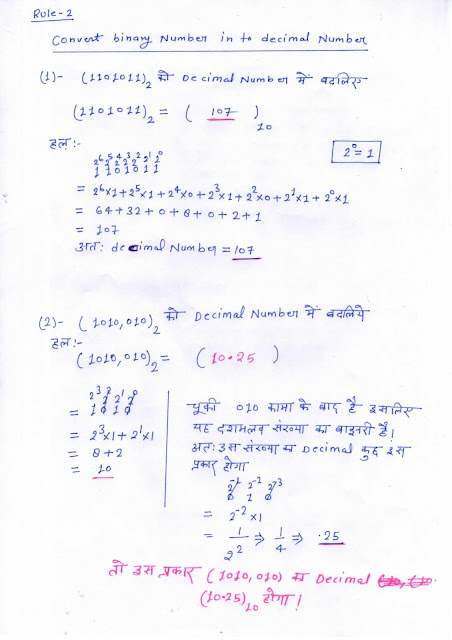 Rule-2
Convert binary Number in to decimal Number
(1)- (1101011)₂ को Decimal Number में बदलिए
(1101011)₂ = ( 107 )₁₀
हल:-
2⁰ = 1
2⁶ 2⁵ 2⁴ 2³ 2² 2¹ 2⁰
1 1 0 1 0 1 1
= 2⁶x1+2⁵x1+2⁴x0+2³x1+2²x0+2¹x1+2⁰x1
= 64+32+0+8+0+2+1
= 107
अत: decimal Number = 107
(2)- (1010,010)₂ को Decimal Number में बदलिये
हल:-
(1010,010)₂ = (10.25)
2³ 2² 2¹ 2⁰
= 1 0 1 0
= 2³x1+2¹x1
= 8+2
= 10
चूकी 010 कामा के बाद है इसलिए
यह दशमलव संख्या का बाइनरी है।
अत: इस संख्या का Decimal कुछ इस
प्रकार होगा
2⁻¹ 2⁻² 2⁻³
0 1 0
= 2⁻² x1
= 1/2² ⇒ 1/4 ⇒ .25
तो इस प्रकार (1010,010) का Decimal
(10.25)₁₀ होगा।